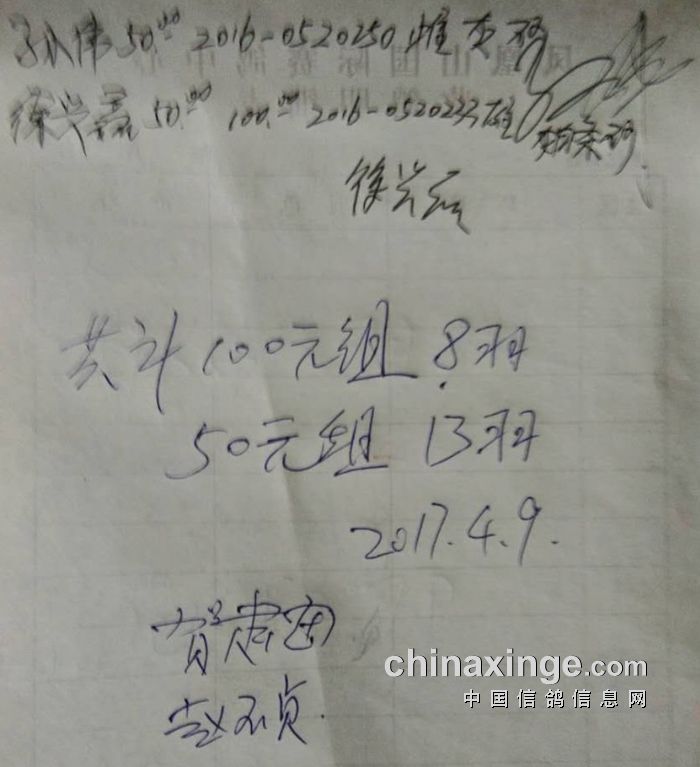 伟 50.00 2016-0520250 雌 麦
徐兴磊 50.00 100.00 2016-0520233 雄 条
徐兴磊
共计 100元组 8羽
50元组 13羽
2017.4.9.
贺肃
赵不贞
chinaxinge.com
中国信鸽信息网